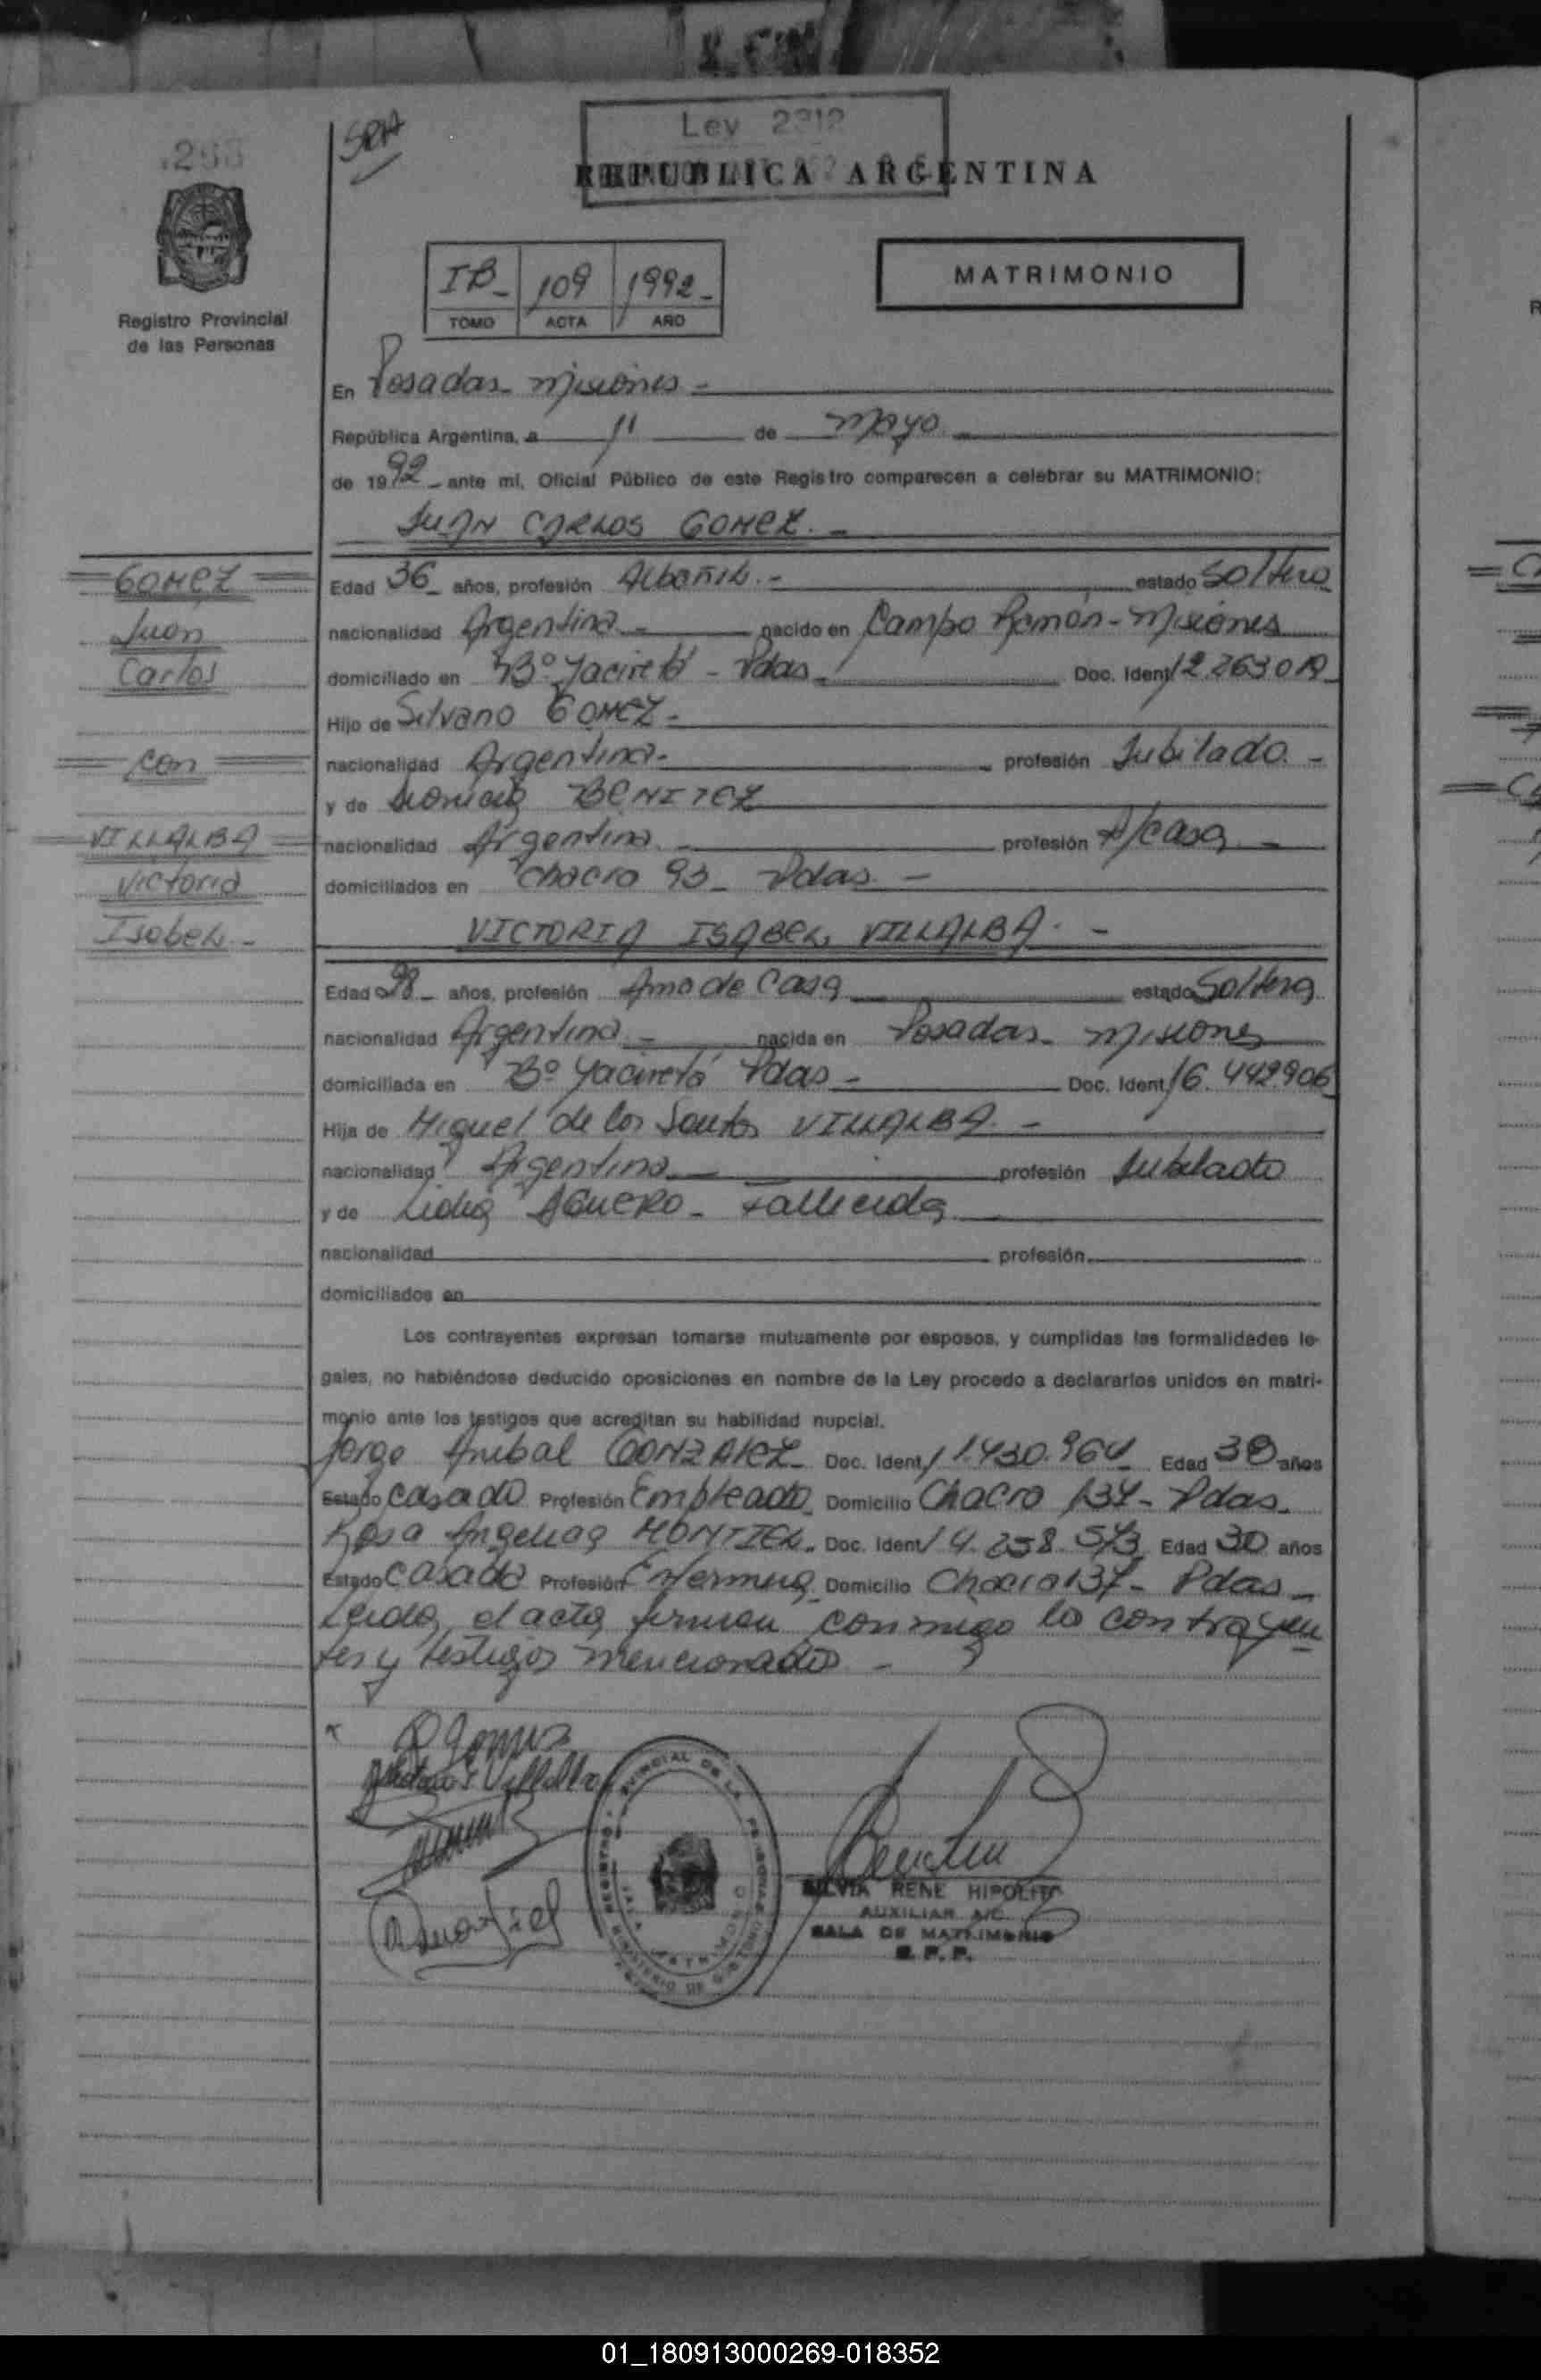 Ley 2312
REPUBLICA ARGENTINA
Registro Provincial
de las Personas
IB - 109 1992 -
TOMO ACTA AÑO
MATRIMONIO
En Posadas - Misiones -
República Argentina, a 11 de Mayo
de 1992 - ante mí, Oficial Público de este Registro comparecen a celebrar su MATRIMONIO:
JUAN CARLOS GOMEZ. -
GOMEZ
Juan
Carlos
con
VILLALBA
Victoria
Isabel -
Edad 36 años, profesión Albañil. - estado Soltero
nacionalidad Argentina - nacido en Campo Ramón - Misiones
domiciliado en Bº Yacireta - Pdas - Doc. Ident.
Hijo de Silvano GOMEZ -
nacionalidad Argentina - profesión Jubilado. -
y de BENITEZ
nacionalidad Argentina. - profesión A/casa -
domiciliados en Chacra 93 - Pdas -
VICTORIA ISABEL VILLALBA. -
Edad 28 - años, profesión Ama de Casa estado Soltera
nacionalidad Argentina - nacida en Posadas - Misiones
domiciliada en Bº Yacireta Pdas - Doc. Ident. 16.442906
Hija de Miguel de los Santos VILLALBA. -
nacionalidad Argentina profesión Jubilado
y de Lidia AGUERO - Fallecida
nacionalidad profesión
domiciliados en
Los contrayentes expresan tomarse mutuamente por esposos, y cumplidas las formalidades le-
gales, no habiéndose deducido oposiciones en nombre de la Ley procedo a declararlos unidos en matri-
monio ante los testigos que acreditan su habilidad nupcial.
Jorge Anibal GONZALEZ - Doc. Ident. 11.430.964 Edad 38 años
Estado casado Profesión Empleado Domicilio Chacra 134 - Pdas.
Rosa Angelica MONTIEL. Doc. Ident. 14.258.573 Edad 30 años
Estado Casada Profesión Enfermera Domicilio Chacra 137 - Pdas -
Leida el acta firman conmigo los contrayen
tes y testigos mencionados -
SILVIA RENE HIPOLITO
AUXILIAR A/C
SALA DE MATRIMONIO
R. P. P.
01_180913000269-018352